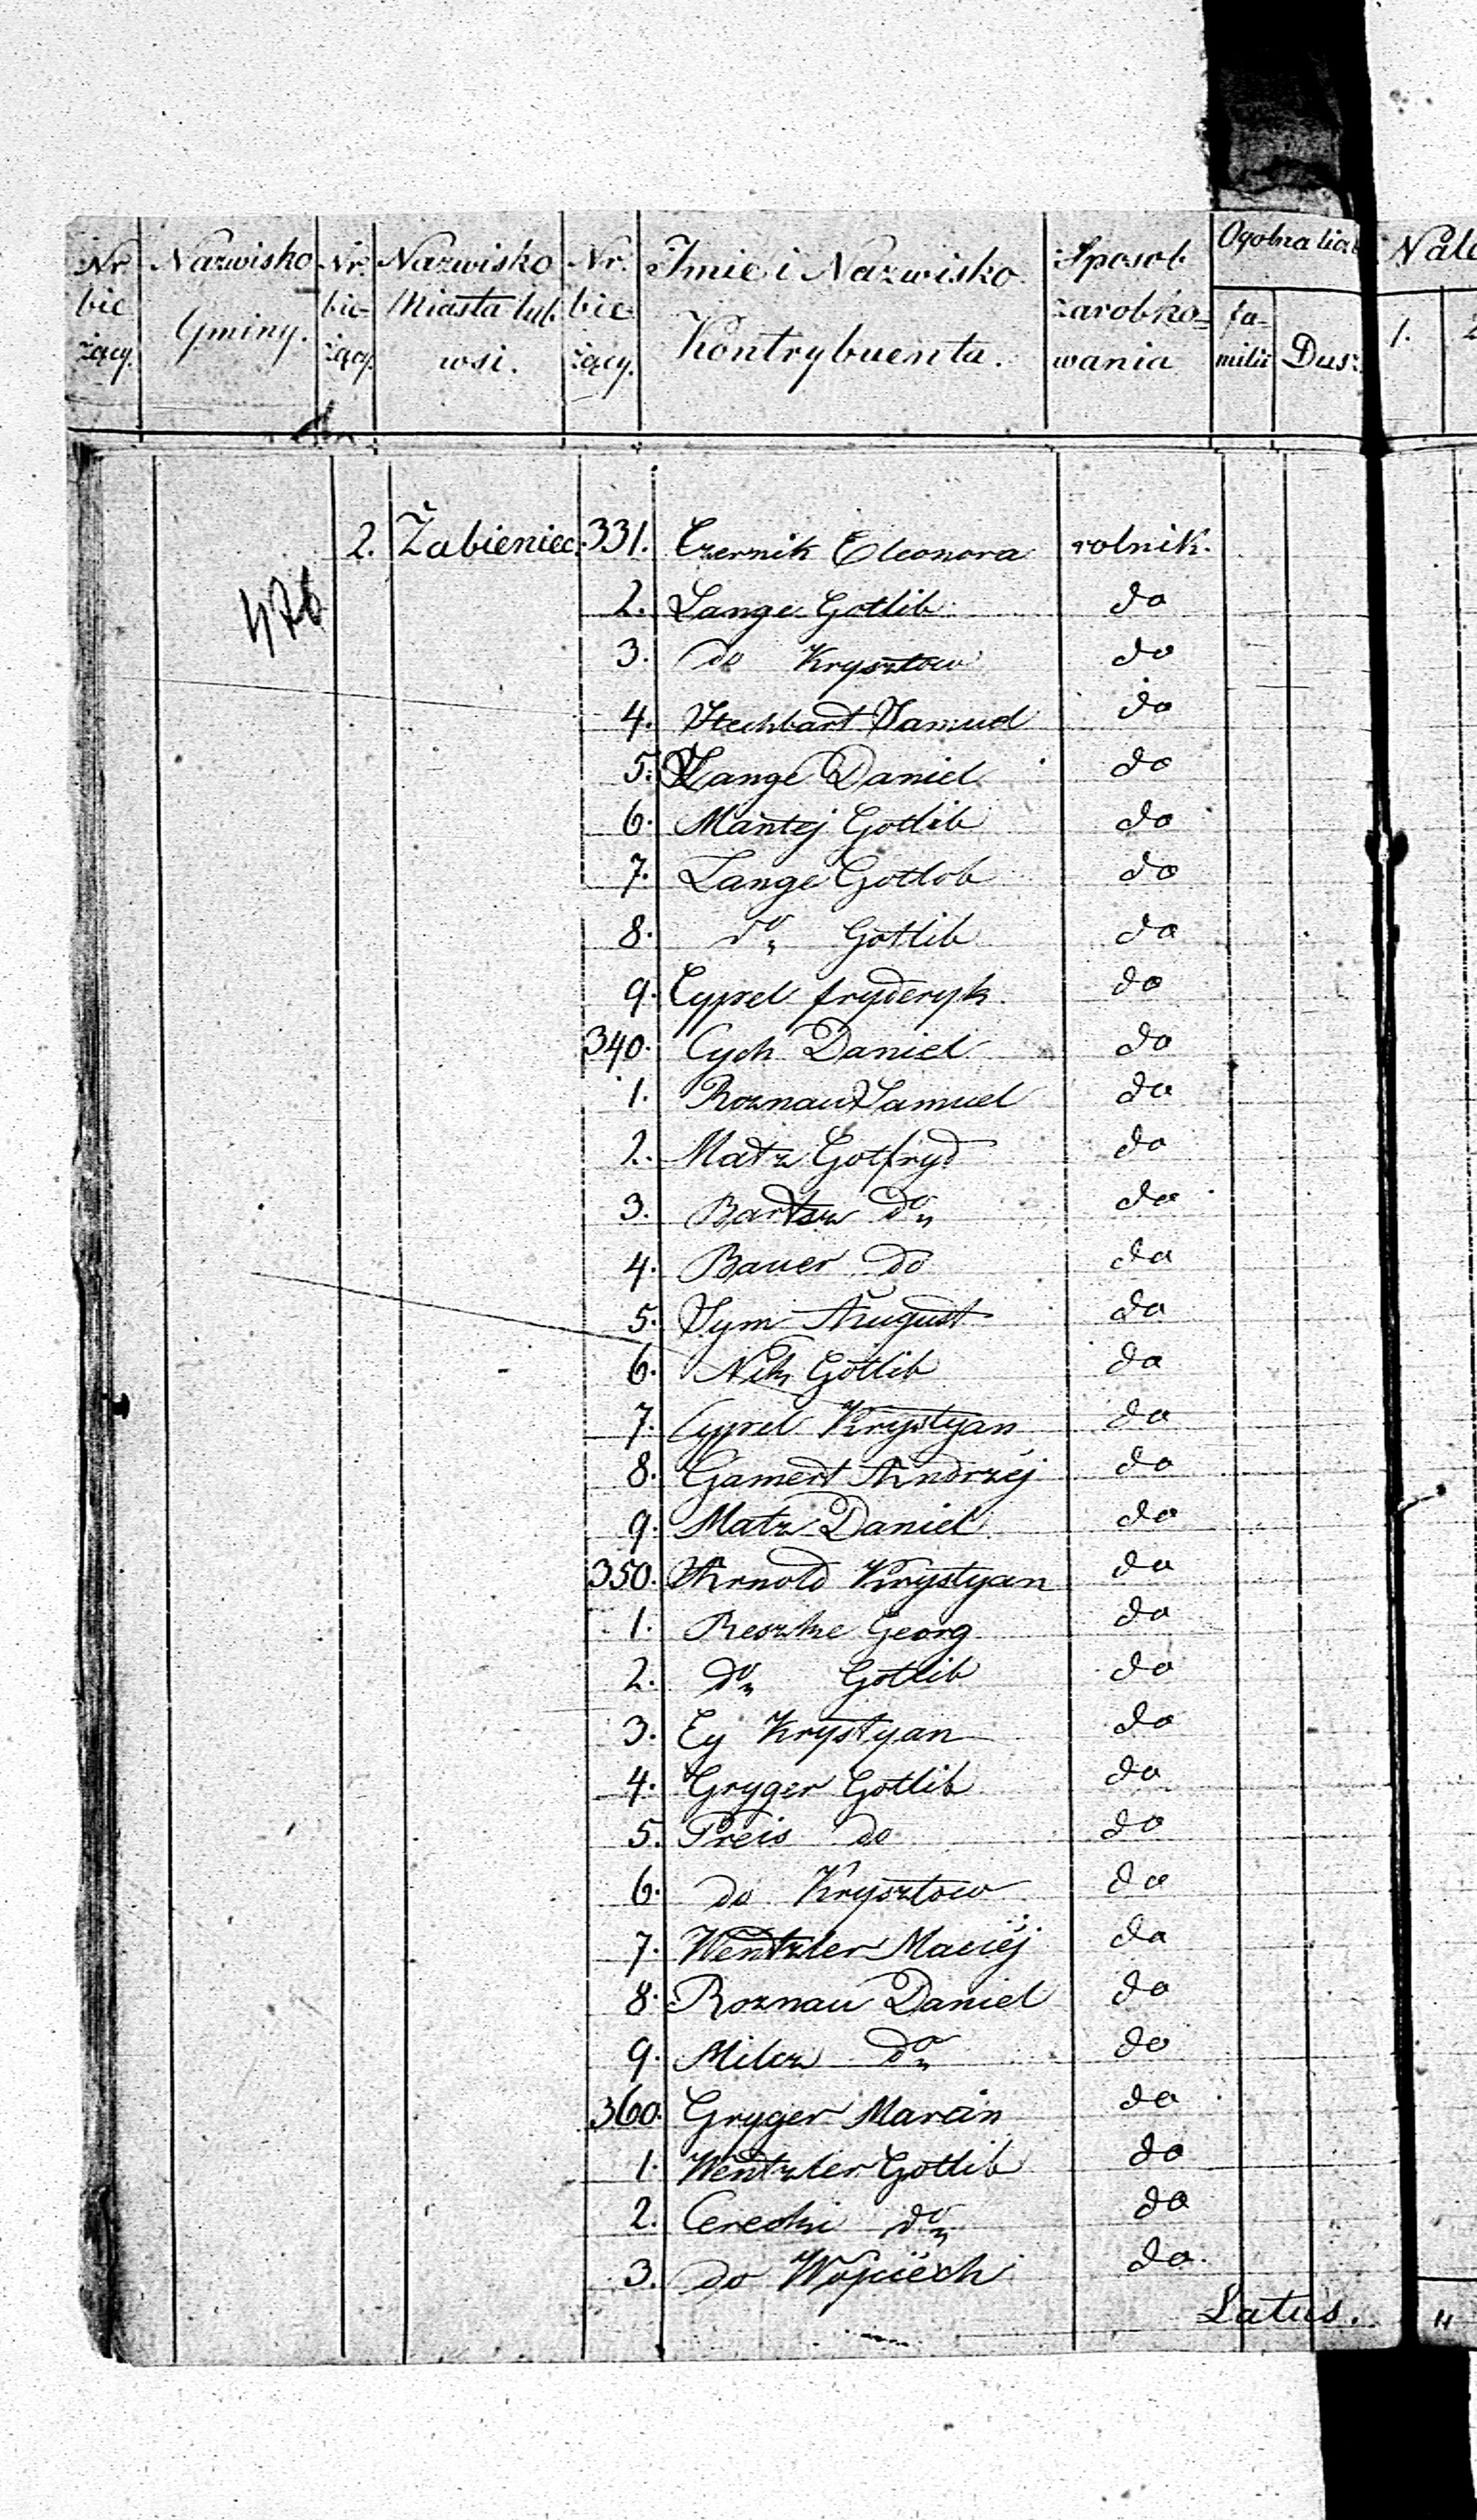 Nr bie żący. Nazwisko Gminy. Nr. bie- żący. Nazwisko Miasta lub wsi. Nr. bie żący. Imie i Nazwisko Kontrybuenta. Sposob zarobko= wania Ogolna licz fa- milii Dusz 1. 2
476
2. Żabieniec. 331. Czernik Eleonora rolnik.
2. Lange Gotlib do
3. do Krysztow do
4. Stechbart Samuel do
5. Lange Daniel do
6. Mantej Gotlib do
7. Lange Gotlob do
8. do Gotlib do
9. Cyprel fryderyk do
340. Cych Daniel do
1. Roznau Samuel do
2. Matz Gotfryd do
3. Bartsz do do
4. Bauer do do
5. Sym August do
6. Nik Gotlib do
7. Cyprel Krystyan do
8. Gamert Andrzéj do
9. Matz Daniel do
350. Arnold Krystyan do
1. Reszke Georg do
2. do Gotlib do
3. Ey Krystyan do
4. Gryger Gotlib do
5. Preis do do
6. do Krysztow do
7. Wentzler Maciéj do
8. Roznau Daniel do
9. Milcz do do
360. Gryger Marcin do
1. Wentzler Gotlib do
2. Cerecki do do
3. do Wojciech do.
Latus.